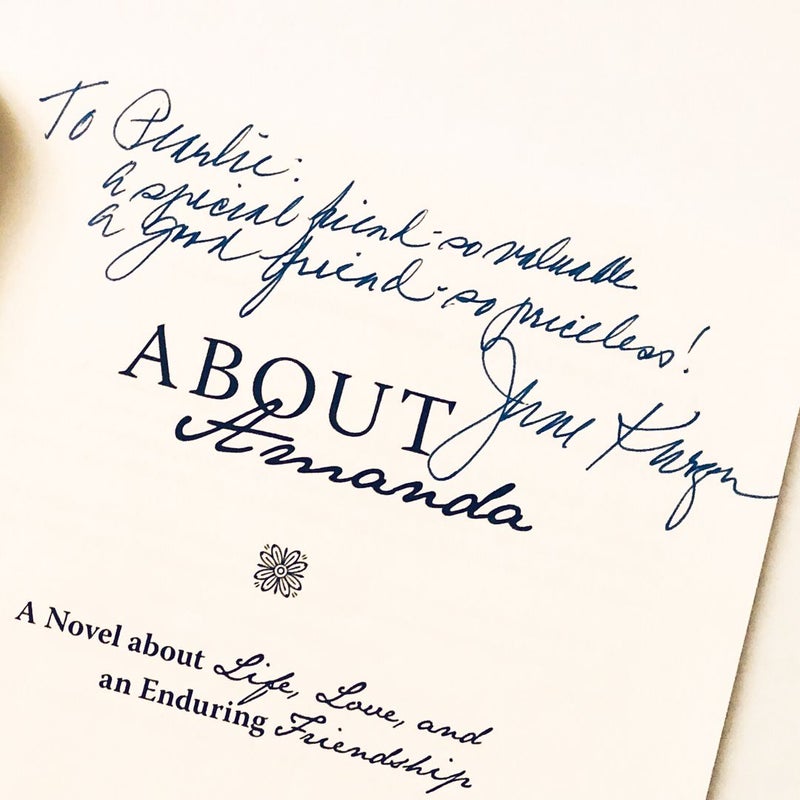 To Pearlie:
A special friend - so valuable
A good friend - so priceless!
June Kurzon
ABOUT
Amanda
A Novel about Life, Love, and
an Enduring Friendship